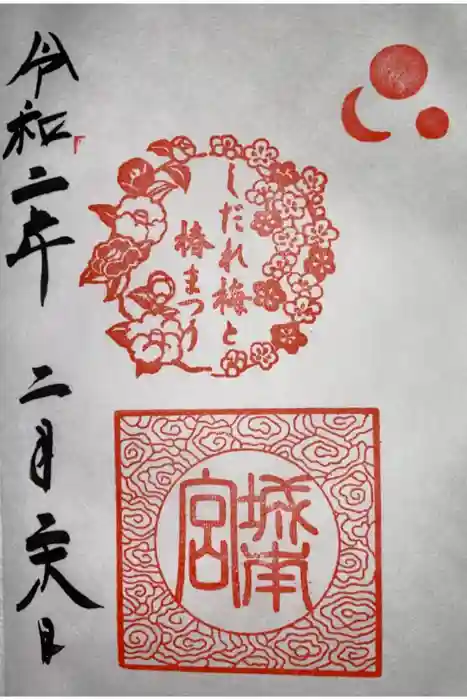 しだれ梅と
椿まつり
城南
宮
令和二年 二月二十六日